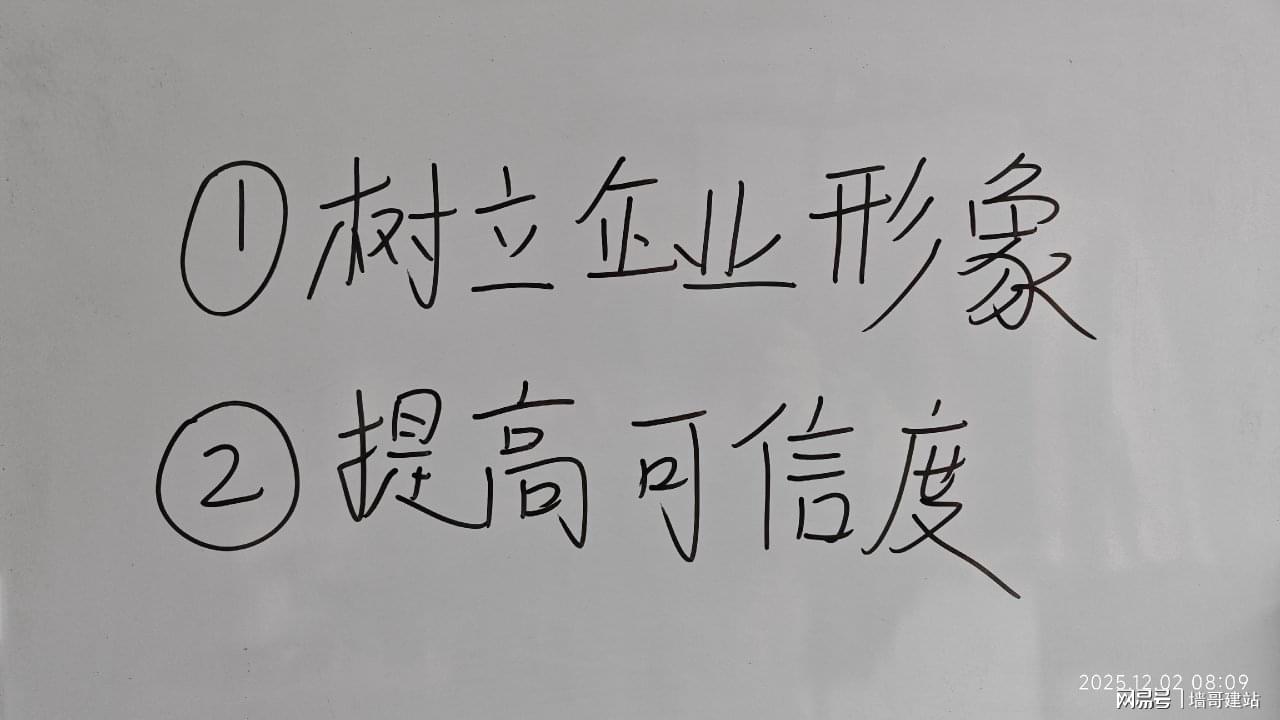 ①树立企业形象
②提高可信度
2025.12.02 08:09
网易号|墙哥建站